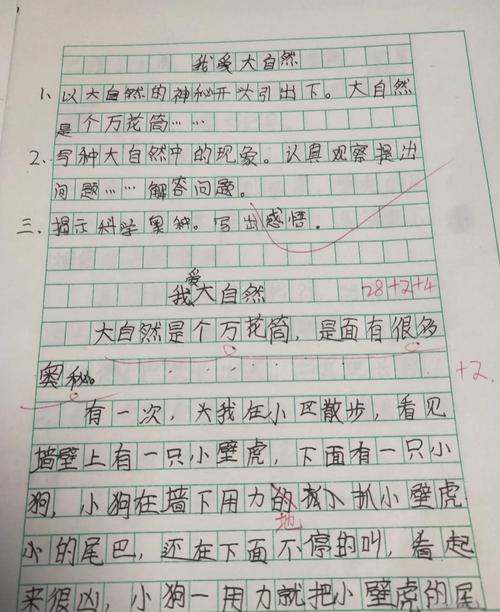 我爱大自然
1、以大自然的神秘开头引出下。大自然
是个万花筒……
2、写种大自然中的现象。认真观察提出
问题……解答问题。
三、揭示科学奥秘。写出感悟。
我爱大自然
28+2+4
大自然是个万花筒，是面有很多
奥秘。
+2
有一次，当我在小区散步，看见
墙壁上有一只小壁虎，下面有一只小
狗，小狗在墙下用力的抓小壁虎
地
的尾巴，还在下面不停的叫，看起
来很凶，小狗一用力就把小壁虎的尾